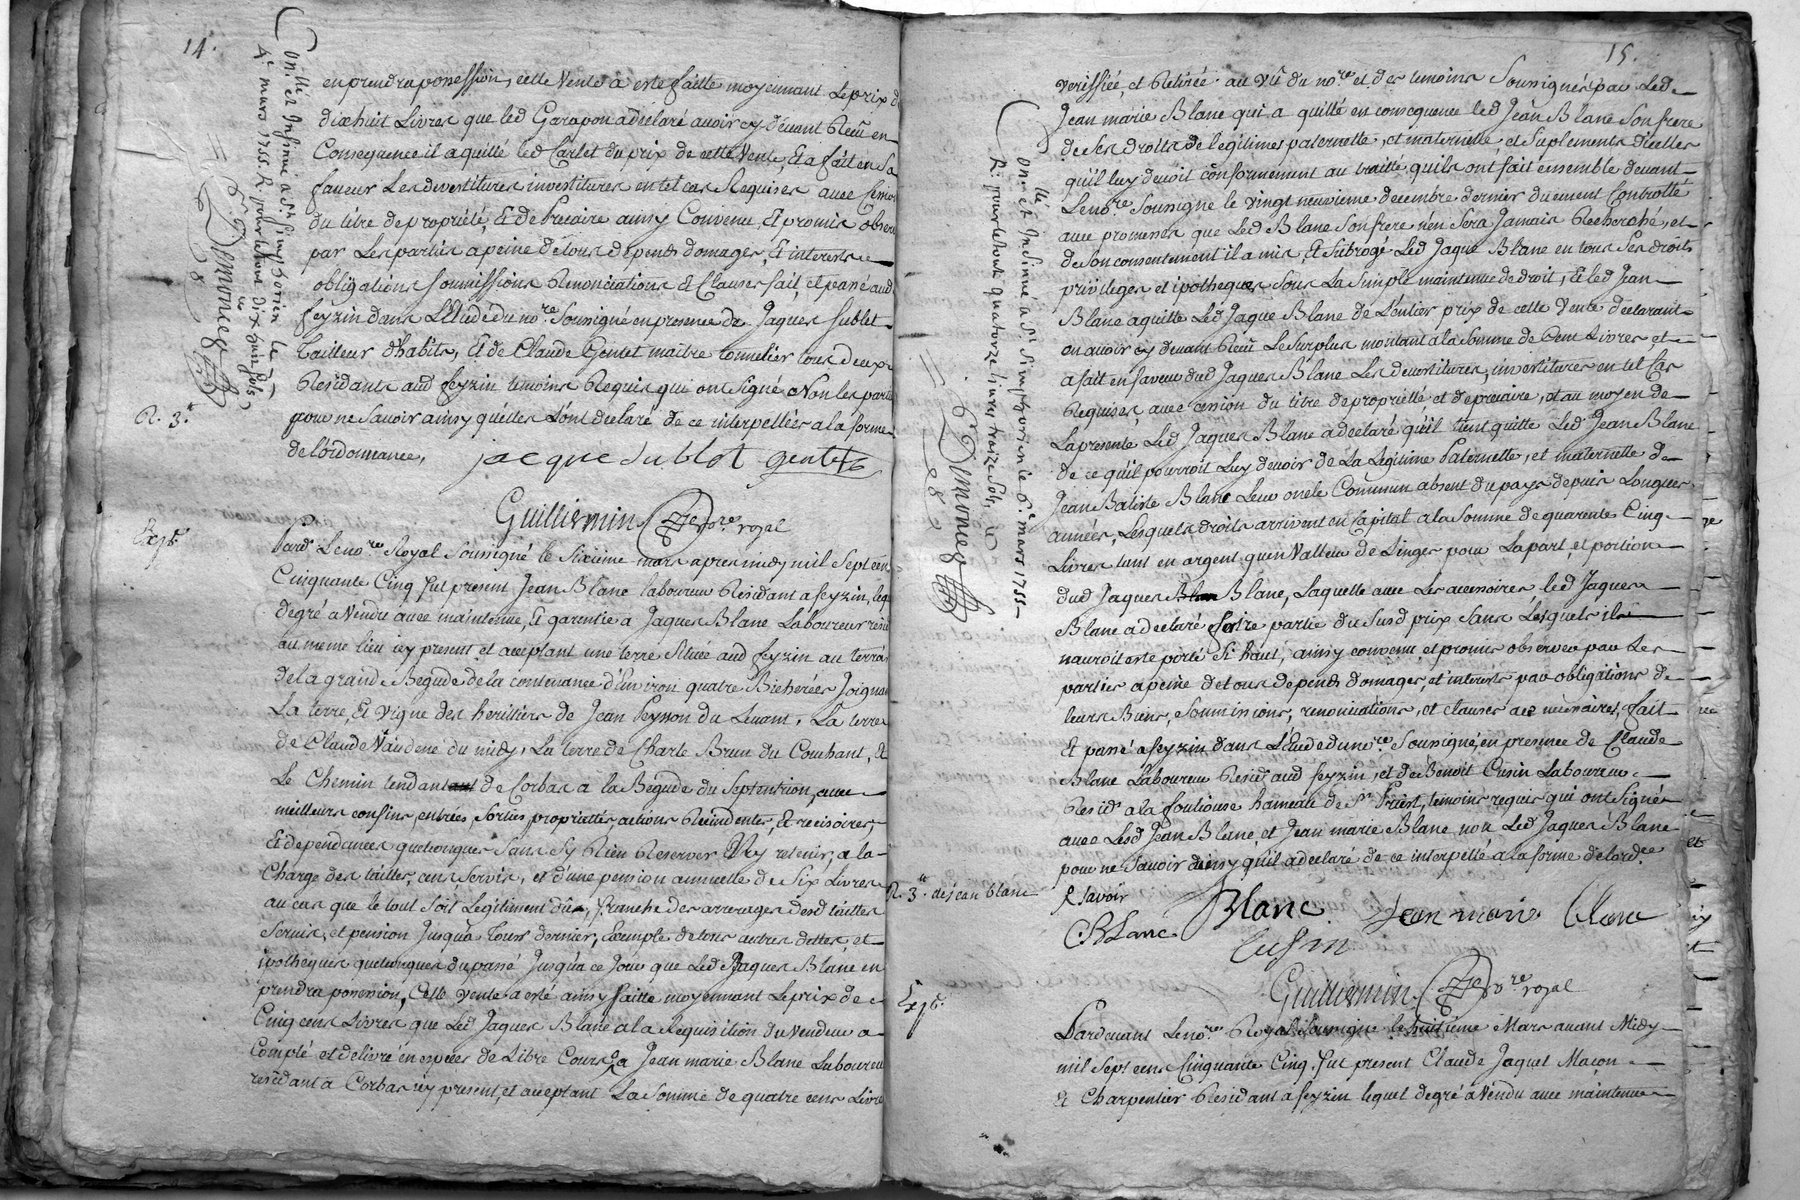 14.
Onlle et Insinué a St Simphorien le
4e mars 1755 R. pour le tout dix huit sols
Demoncel
R. 3tt
en prendra possession, cette Vente a esté faitte moyennant Le prix d
dixhuit Livres que led Garapon a déclaré avoir cy devant Reçû en
Consequence il a quitté led Carlet du prix de cette Vente, Et a fait en Sa
faveur Les devestitures investitures en tel cas Requises avec
du titre de propriété, Et de Precaire ainsy Convenu, Et promis observ
par Les parties a peine de tous depends domages, Et interests
obligations soumissions Renonciations Et Clauses fait, et passé aud
feyzin dans L'Etude du nore Soussigné en presence de Jaques Sublet
tailleur d'habits, Et de Claude Gentet maitre tonnelier tous deux
Residants aud feyzin temoins Requis qui ont signé Non les part
pour ne savoir ainsy quelles L'ont declaré de ce interpellées a la forme
de l'ordonnance,
jacque sublet gentet
Guilliermin nore royal
Expt.
Pardt Le nore Royal Soussigné le Sixieme mars apres midy mil Sept cen
Cinquante Cinq fut present Jean Blanc laboureur Residant a feyzin, leq
de gré a Vendu avec maintenue, Et garentie a Jaques Blanc Laboureur resid
au meme lieu icy present et acceptant une terre Située aud feyzin au terrai
de la grande Begude de la contenance d'Environ quatre Bicherées Joignan
La terre, Et vigne des heritiers de Jean Peynon du Levant, La terre
de Claude Vaudene du midy, La terre de Charle Brun du Couchant, Et
Le Chemin tendant de Corbas a la Begude du Septentrion, avec
meilleurs confins, entrées, Sorties proprietés, actions Recindentes, Et recisoires,
Et dependances quelconques Sans S'y Rien Reserver Ny retenir, a la
Charge des tailles, cens Servis, et d'une pension annuelle de Six Livres
au cas que le tout soit Legitiment dûe, franche des arrerages desd tailles
Servis, et pension Jusqu'a Tours dernier, Exempte de tous autres dettes, et
ipotheques quelconques du passé Jusqu'a ce Jour que Led Jaques Blanc en
prendra possession, Cette Vente a esté ainsy faitte moyennant Le prix de
Cinq cens Livres que Led Jaques Blanc a la Requisition du Vendeur a
Compté et delivré en especes de Libre Cours a Jean marie Blanc Laboureur
residant a Corbas icy present, et acceptant La Somme de quatre cens Livre
15.
Onlle et Insinué a St Simphorien le 6e mars 1755
R. pour le tout quatorze livres traize sols
Demoncel
veriffiée, et Retirée au vû du nore et des temoins Soussignés par Led
Jean marie Blanc qui a quitté en consequence led Jean Blanc Son frere
de Ses droits de legitimes paternelle, et maternelle, et Suplements d'icelles
qu'il luy devoit conformement au traitté qu'ils ont fait ensemble devant
Le nore Soussigné le vingt neuvieme decembre dernier duement Controllé
avec promesses que Led Blanc Son frere n'en Sera Jamais Recherché, et
de Son consentement il a mis, Et Subrogé Led Jaque Blanc en tous Ses droits
privileges et ipotheques Sous La Simple maintenue de droit, Et led Jean
Blanc a quitté Led Jaque Blanc de L'entier prix de cette Vente declarant
en avoir cy devant Reçû Le Surplus montant a la Somme de Cent Livres et
a fait en faveur dud Jaques Blanc Les devestitures, investitures en tel Cas
Requises, avec cession du titre de propriété et de precaire, et au moyen de
La presente Led Jaques Blanc a declaré qu'il tient quitte Led Jean Blanc
de ce qu'il pourroit Luy devoir de La Legitime Paternelle, et maternelle de
Jean Batiste Blanc Leur oncle Commun absent du pays depuis Longues
années, Lesquels droits arrivent en Capital a la Somme de quarente Cinq
Livres tant en argent qu'en Valleur de Linges pour La part et portion
dud Jaques Blan Blanc, Laquelle avec Les accessoires led Jaques
Blanc a declaré faire partie du Susd prix Sans Lesquels il
n'auroit esté porté Si haut, ainsy convenu, et promis observer par Les
parties a peine de tous depends domages, et interests par obligations de
leurs Biens, Soumissions, renonciations, et clauses a ce necessaires, fait
Et passé a feyzin dans L'Etude du nore. Soussigné, en presence de Claude
Blanc Laboureur Resid aud feyzin, et de Benoit Cusin Laboureur
Resid a la fouliouse hameau de St Priest, temoins requis qui ont Signé
avec Lesd Jean Blanc, et Jean marie Blanc, non Led Jaques Blanc
pour ne Savoir ainsy qu'il a declaré de ce interpellé a la forme de lordce
R. 3tt de jean blanc
& savoir
Blanc Jean marie blanc
C Blanc
Cusin
Guilliermin nore royal
Expt.
Pardevant Le nore Royal Soussigné le huitieme Mars avant Midy
mil sept cens Cinquante Cinq fut present Claude Jaquet Maçon
Et Charpentier Residant a feyzin lequel de gré a Vendu avec maintenue